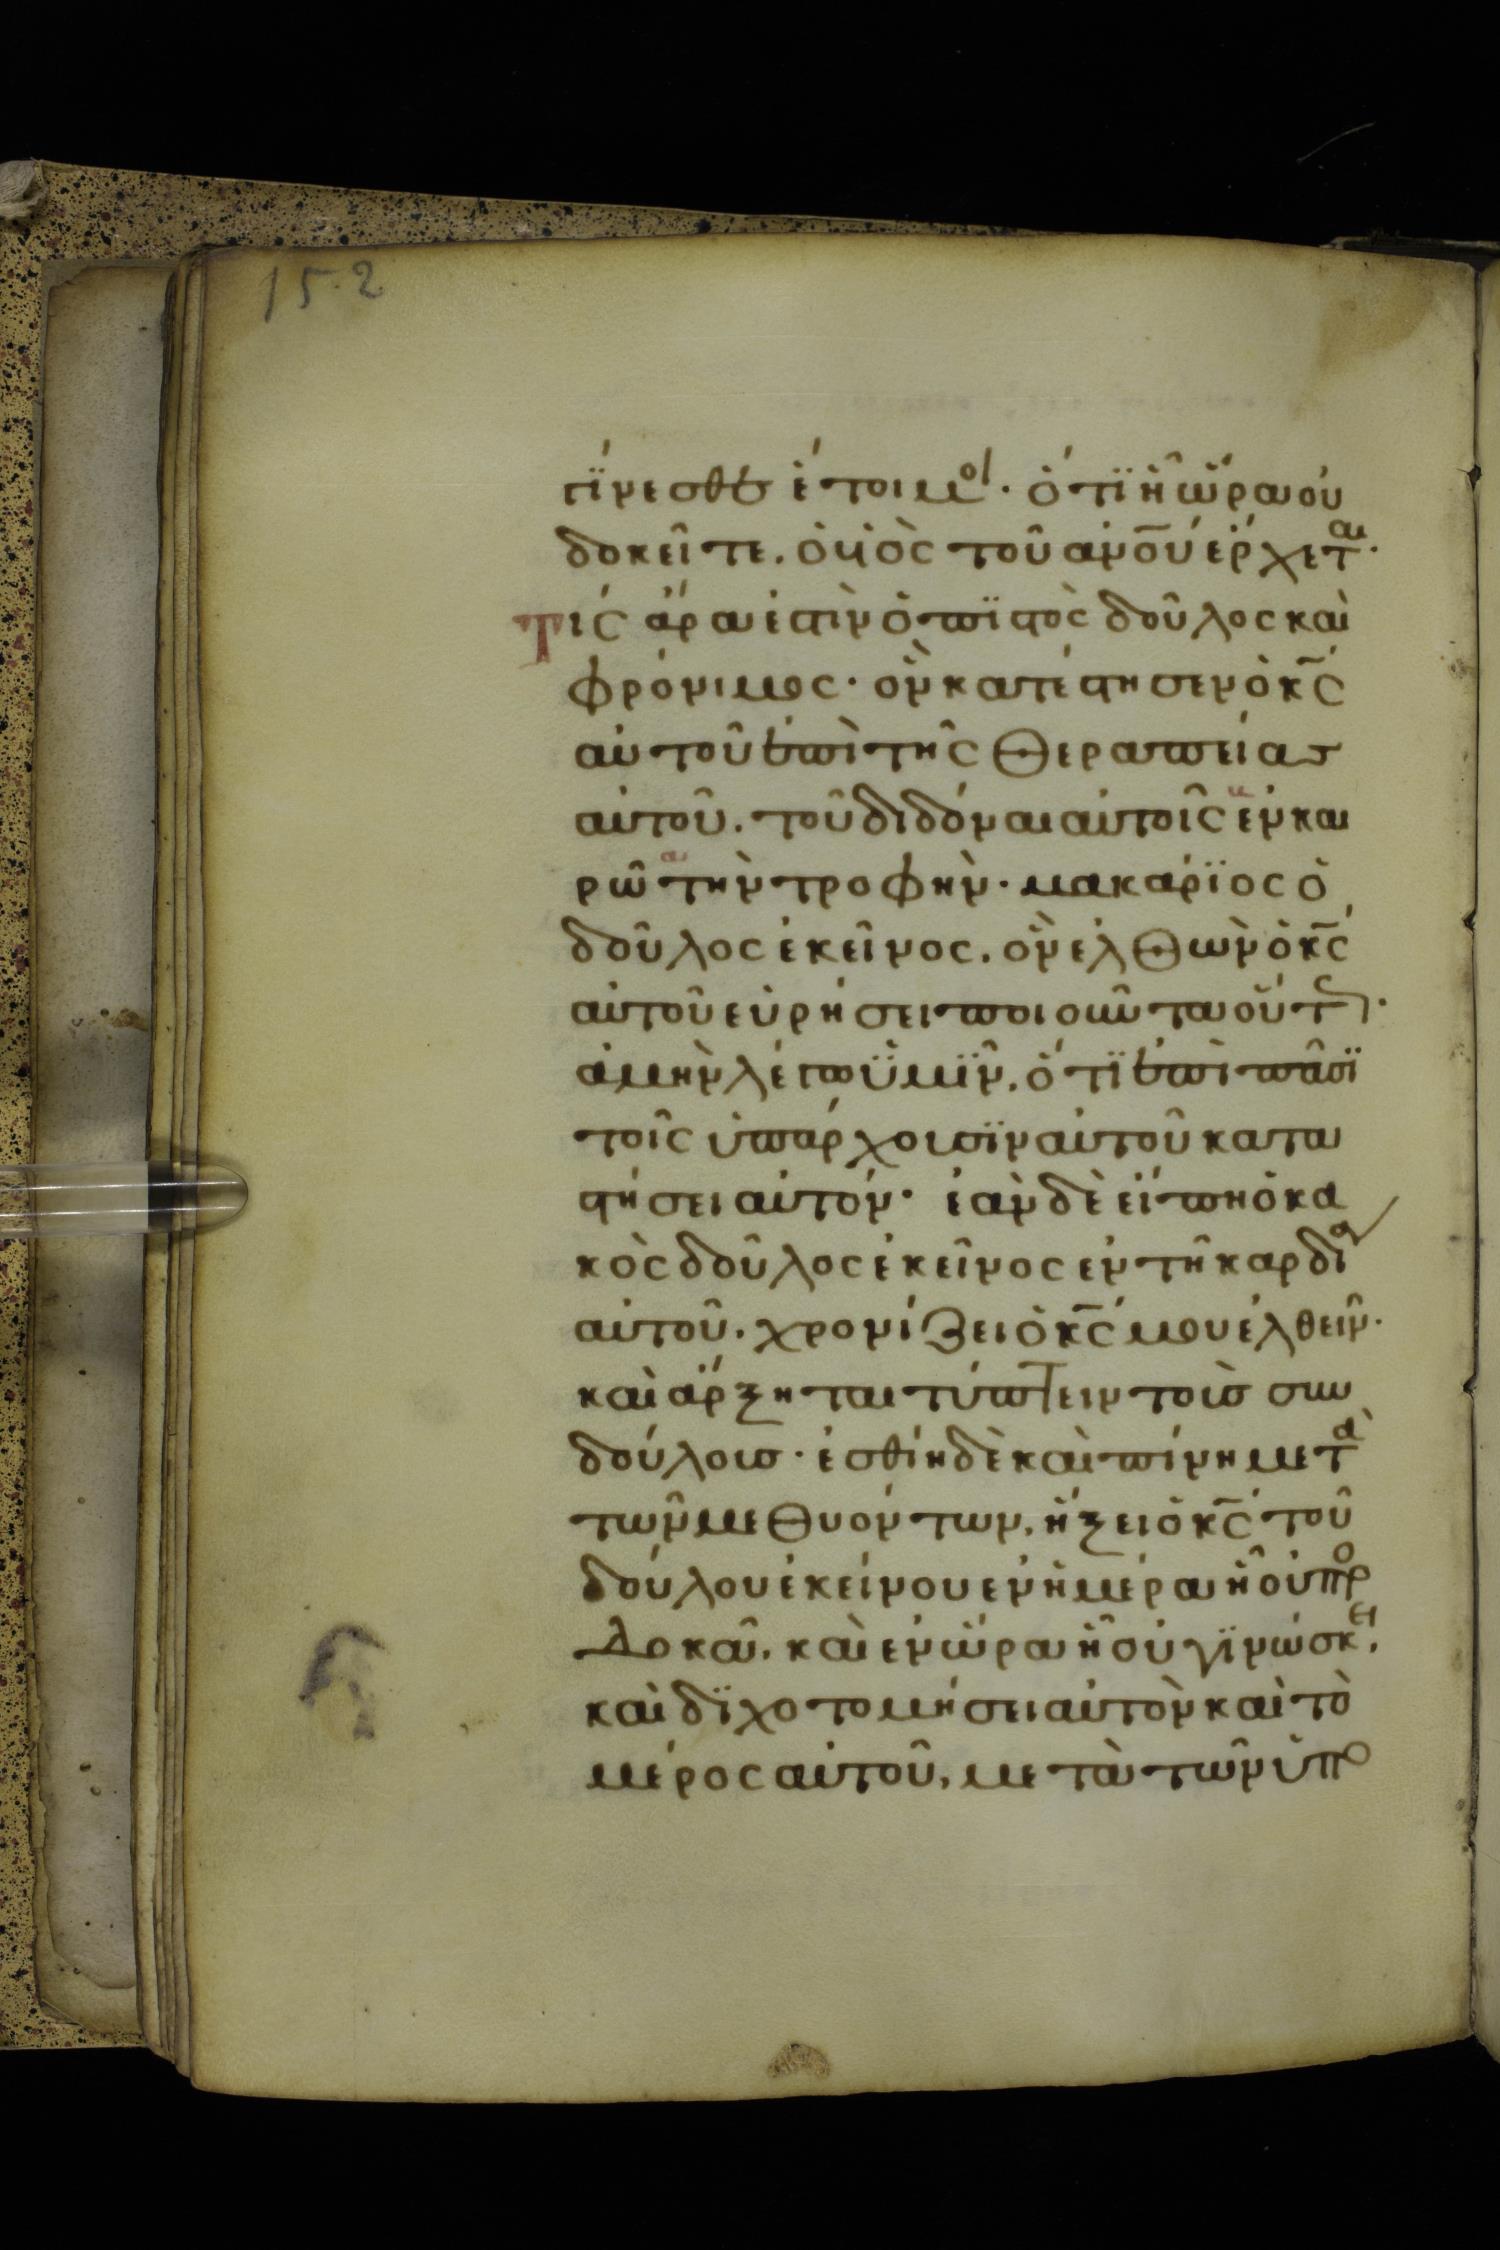 152
γίνεσθε ἕτοιμοι· ὅτι ἡ ὥρα οὐ
δοκεῖτε. ὁ υἱὸς τοῦ ἀν̅ο̅υ̅ ἔρχεται·
Τίς ἄρα ἐστὶν ὁ πϊστὸς δοῦλος καὶ
φρόνιμος· ὃν κατέστησεν ὁ κ̅ς̅
αὐτοῦ ἐπὶ τῆς θεραπείας
αὐτοῦ. τοῦ διδόναι αὐτοῖς ἐν και
ρῶ τὴν τροφὴν· μακάρϊος ὁ
δοῦλος ἐκεῖνος. ὃν ἐλθὼν ὁ κ̅ς̅
αὐτοῦ εὑρήσει ποιοῦντα οὕτως·
ἀμὴν λέγω ὑμῖν. ὅτϊ ἐπὶ πᾶσϊ
τοῖς ὑπάρχουσϊν αὐτοῦ κατα
στήσει αὐτόν· ἐὰν δὲ εἴπη ὁ κα
κὸς δοῦλος ἐκεῖνος ἐν τῆ καρδία
αὐτοῦ. χρονίζει ὁ κ̅ς̅ μου ἐλθεῖν·
καὶ ἄρξηται τύπτειν τοὺσ συν
δούλουσ· ἐσθίη δὲ καὶ πίνη μετὰ
τῶν μεθυόντων. ἥξει ὁ κ̅ς̅ τοῦ
δούλου ἐκείνου ἐν ἡμέρα ἧ οὐ προσ
δοκᾶ. καὶ ἐν ὥρα ἧ οὐ γϊνώσκει.
καὶ δϊχοτομήσει αὐτὸν καὶ τὸ
μέρος αὐτοῦ, μετὰ τῶν ὑπο